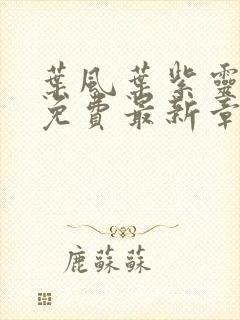 葉風葉紫靈
免費最新章
鹿蘇蘇